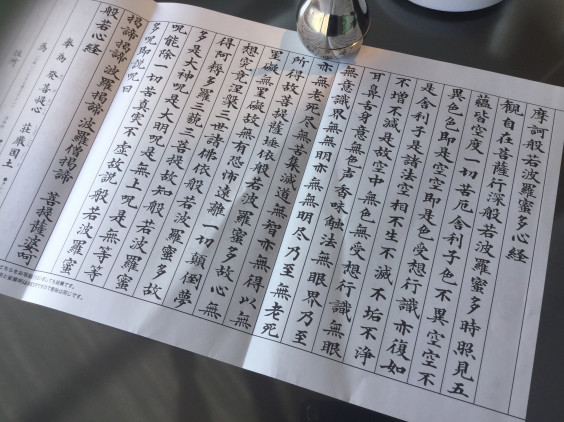 摩訶般若波羅蜜多心経
観自在菩薩行深般若波羅蜜多時照見五
蘊皆空度一切苦厄舎利子色不異空空不
異色色即是空空即是色受想行識亦復如
是舎利子是諸法空相不生不滅不垢不浄
不増不減是故空中無色無受想行識無眼
耳鼻舌身意無色声香味触法無眼界乃至
無意識界無無明亦無無明尽乃至無老死
亦無老死尽無苦集滅道無智亦無得以無
所得故菩提薩埵依般若波羅蜜多故心無
罣礙無罣礙故無有恐怖遠離一切顛倒夢
想究竟涅槃三世諸佛依般若波羅蜜多故
得阿耨多羅三藐三菩提故知般若波羅蜜
多是大神呪是大明呪是無上呪是無等等
呪能除一切苦真実不虚故説般若波羅蜜
多呪即説呪曰
掲諦掲諦 波羅掲諦 波羅僧掲諦 菩提薩婆呵
般若心経
奉為 発菩提心 荘厳国土
為